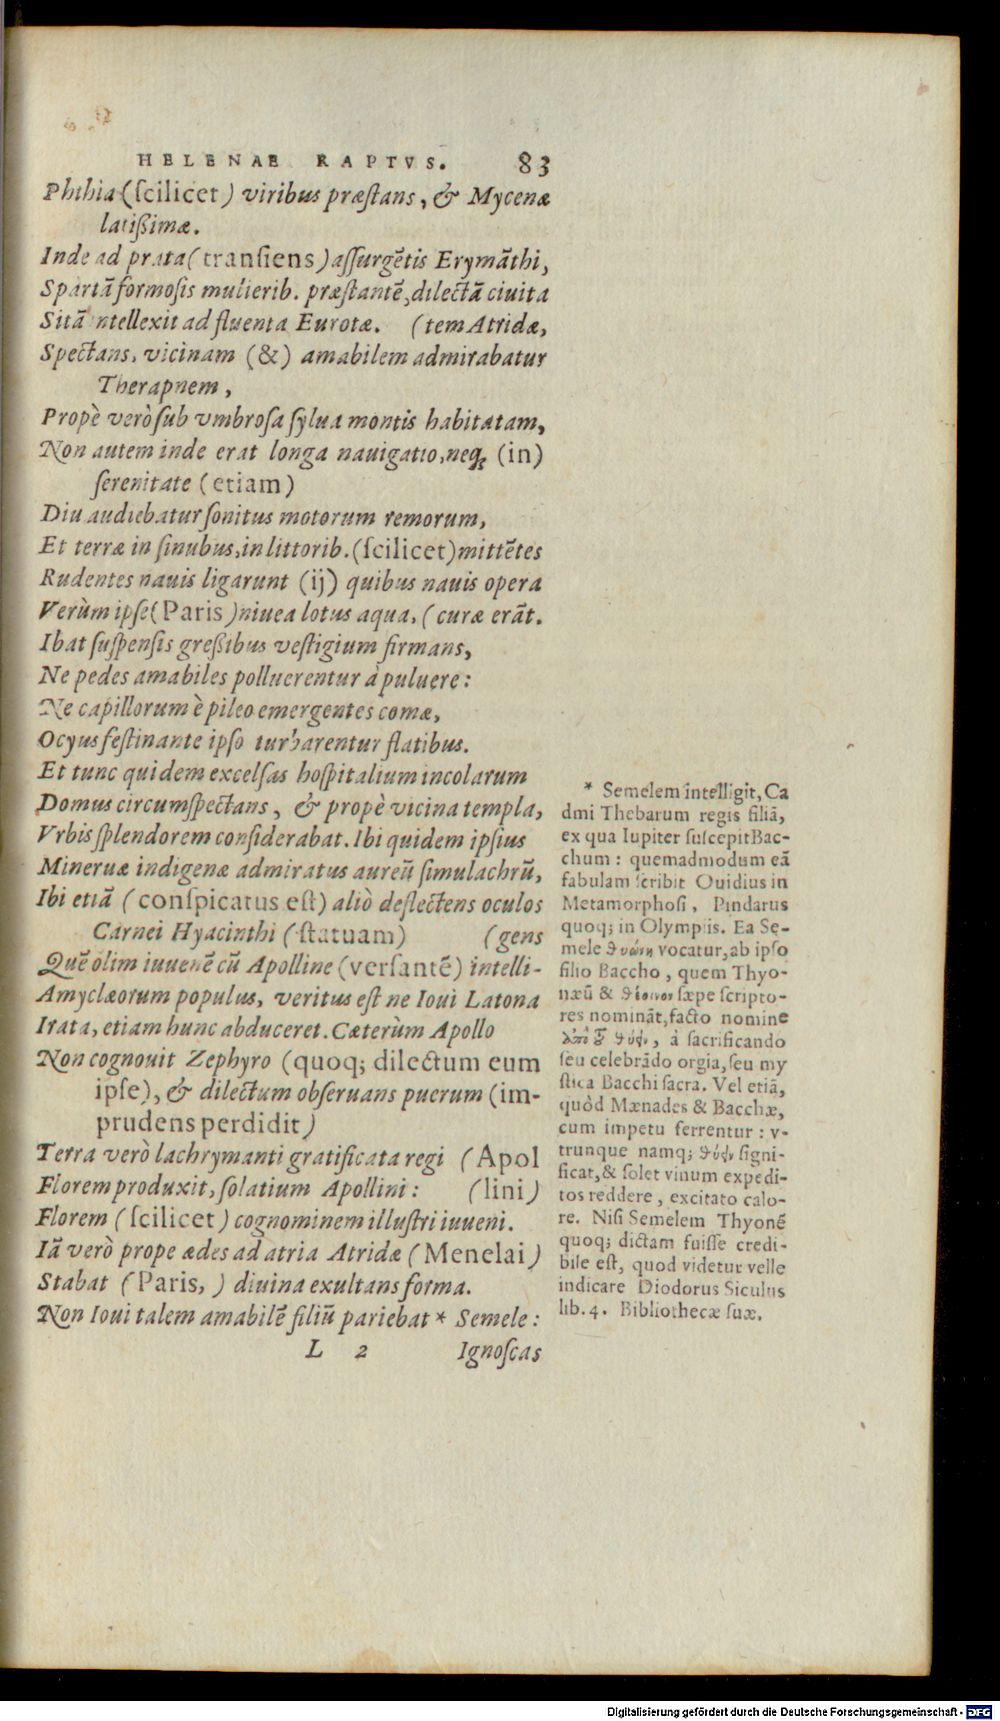 HELENAE RAPTVS. 83
Phthia (ſcilicet) viribus præſtans, & Mycenæ
latißimæ.
Inde ad prata (tranſiens) aſſurgẽtis Erymãthi,
Spartã formoſis mulierib. præſtantẽ, dilectã ciuita
Sitã ntellexit ad fluenta Eurotæ. (tem Atridæ,
Spectans, vicinam (&) amabilem admirabatur
Therapnem,
Propè verò ſub vmbroſa ſylua montis habitatam,
Non autem inde erat longa nauigatio, neq; (in)
ſerenitate (etiam)
Diu audiebatur ſonitus motorum remorum,
Et terræ in ſinubus, in littorib. (ſcilicet) mittẽtes
Rudentes nauis ligarunt (ij) quibus nauis opera
Verùm ipſe (Paris) niuea lotus aqua, (curæ erãt.
Ibat ſuſpenſis greßibus veſtigium firmans,
Ne pedes amabiles polluerentur à puluere:
Ne capillorum è pileo emergentes comæ,
Ocyus feſtinante ipſo turbarentur flatibus.
Et tunc quidem excelſas hoſpitalium incolarum
Domus circumſpectans, & propè vicina templa,
Vrbis ſplendorem conſiderabat. Ibi quidem ipſius
Mineruæ indigenæ admiratus aureũ ſimulachrũ,
Ibi etiã (conſpicatus eſt) aliò deflectens oculos
Carnei Hyacinthi (ſtatuam) (gens
Quẽ olim iuuenẽ cũ Apolline (verſantẽ) intelli-
Amyclæorum populus, veritus eſt ne Ioui Latona
Irata, etiam hunc abduceret. Cæterùm Apollo
Non cognouit Zephyro (quoq; dilectum eum
ipſe), & dilectum obſeruans puerum (im-
prudens perdidit)
Terra verò lachrymanti gratificata regi (Apol
Florem produxit, ſolatium Apollini: (lini)
Florem (ſcilicet) cognominem illuſtri iuueni.
Iã verò prope ædes ad atria Atridæ (Menelai)
Stabat (Paris,) diuina exultans forma.
Non Ioui talem amabilẽ filiũ pariebat * Semele:
L 2 Ignoſcas
* Semelem intelligit, Ca
dmi Thebarum regis filiã,
ex qua Iupiter ſuſcepit Bac-
chum: quemadmodum eã
fabulam ſcribit Ouidius in
Metamorphoſi, Pindarus
quoq; in Olympiis. Ea Se-
mele θυώνη vocatur, ab ipſo
filio Baccho, quem Thyo-
næũ & ſæpe ſcripto-
res nominãt, facto nomine
à ſacrificando
ſeu celebrãdo orgia, ſeu my
ſtica Bacchi ſacra. Vel etiã,
quòd Mænades & Bacchæ,
cum impetu ferrentur: v-
trunque namq; θύειν ſigni-
ficat, & ſolet vinum expedi-
tos reddere, excitato calo-
re. Niſi Semelem Thyonẽ
quoq; dictam fuiſſe credi-
bile eſt, quod videtur velle
indicare Diodorus Siculus
lib. 4. Bibliothecæ ſuæ.
Digitalisierung gefördert durch die Deutsche Forschungsgemeinschaft - DFG